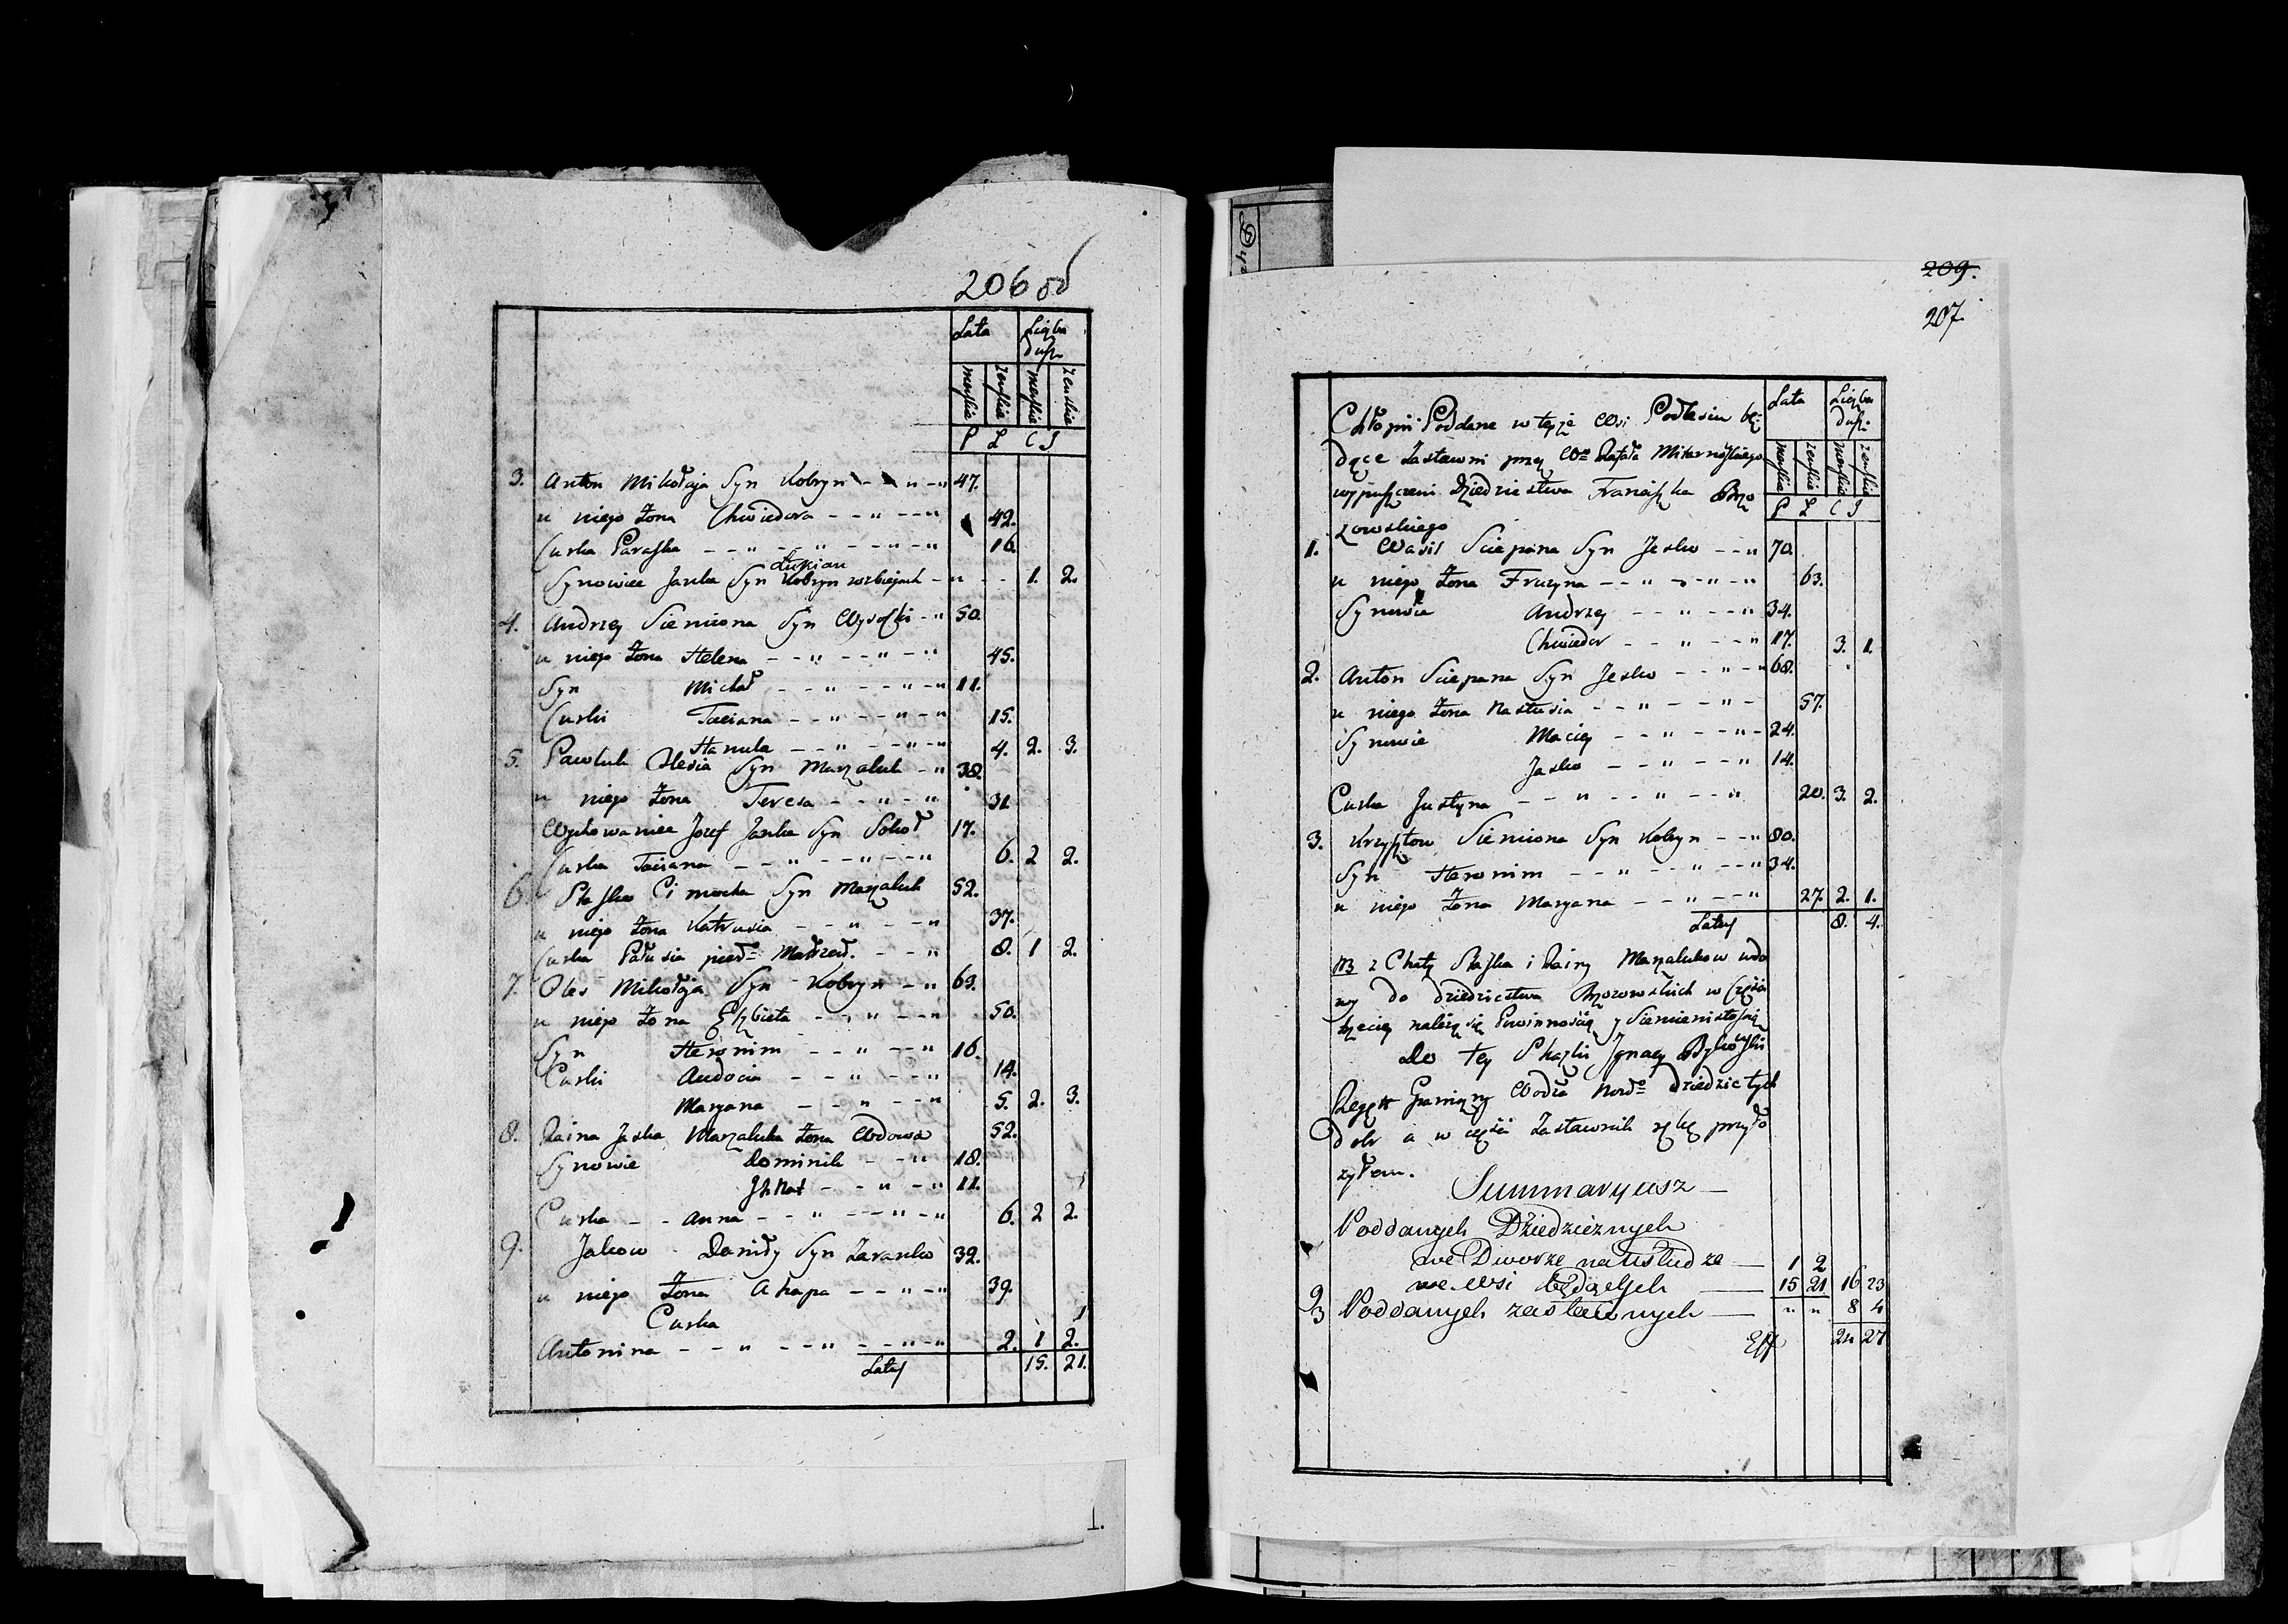 206 об
Lata Liczba dusz
męskie żeńskie męskie żeńskie
P L C J
3. Anton Mikołaja Syn Kobryn 47.
u niego Żona Chwiedora 42.
Curka Paraska 16.
Łukian
Synowiec Janka Syn Kobryn w zbiegach 1. 2.
4. Andrzey Siemiona Syn Wysocki 50.
u niego Żona Helena 45.
Syn Michał 11.
Curki Taciana 15.
Hanula 4. 2. 3.
5. Pawluk Olesia Syn Marzaluk 38.
u niego Żona Teresa 31
Wychowaniec Jozef Janka Syn Sokoł 17.
Curka Taciana 6. 2 2.
6 Staśko Cimocha Syn Marzaluk 52.
u niego Żona Katrusia 37.
Curka Pałusia 8. 1 2.
7. Oles Mikołaja Syn Kobryn 63.
u niego Żona Elżbieta 50.
Syn Heronim 16.
Curki Audocia 14.
Maryana 5. 2. 3.
8. Raina Jaska Marzaluka Żona Wdowa 52.
Synowie Dominik 18.
Ihnat 11.
Curka Anna 6. 2 2.
9. Jakow Daniły Syn Zaranko 32.
u niego Żona Ahapa 39.
Curka
Antonina 2. 1 2.
Latus 15. 21.
1.
209.
207.
Lata Liczba dusz
męskie żeńskie męskie żeńskie
P L C J
Chłopi Poddane w teyże Wsi Podlesiu bę
dące Zastawni przez Wo Rafała
wypuszczeni Dziedzictwa Franciszka Brzo
zowskiego
1. Wasil Sciepana Syn Jesko 70.
u niego Żona Fruzyna 63.
Synowie Andrzey 34.
Chwiedor 17. 3. 1.
2. Anton Sciepana Syn Jesko 68.
u niego Żona Nastusia 57.
Synowie Maciey 24.
Jasko 14.
Curka Justyna 20. 3. 2.
3. Krzysztow Siemiona Syn Kobryn 80.
Syn Heronim 34.
u niego Żona Maryana 27. 2. 1.
Latus 8. 4.
NB z Chaty Staśka i Rainy Marzalukow wdo
wy do dziedzictwa Brzozowskich w Części
trzeciey należy się Powinnością y
Do tey Skazki Ignacy Bykowski
Regent Graniczny Wodztwa Nowd dziedzic tych
dobr a w części Zastawnik rękę przyło
żyłem.
Summaryusz
Poddanych Dziedzicznych
we Dworze na usłudze 1 2
9 we Wsi będących 15 21 16 23
3 Poddanych zastawnych " " 8 4
Eff 24 27